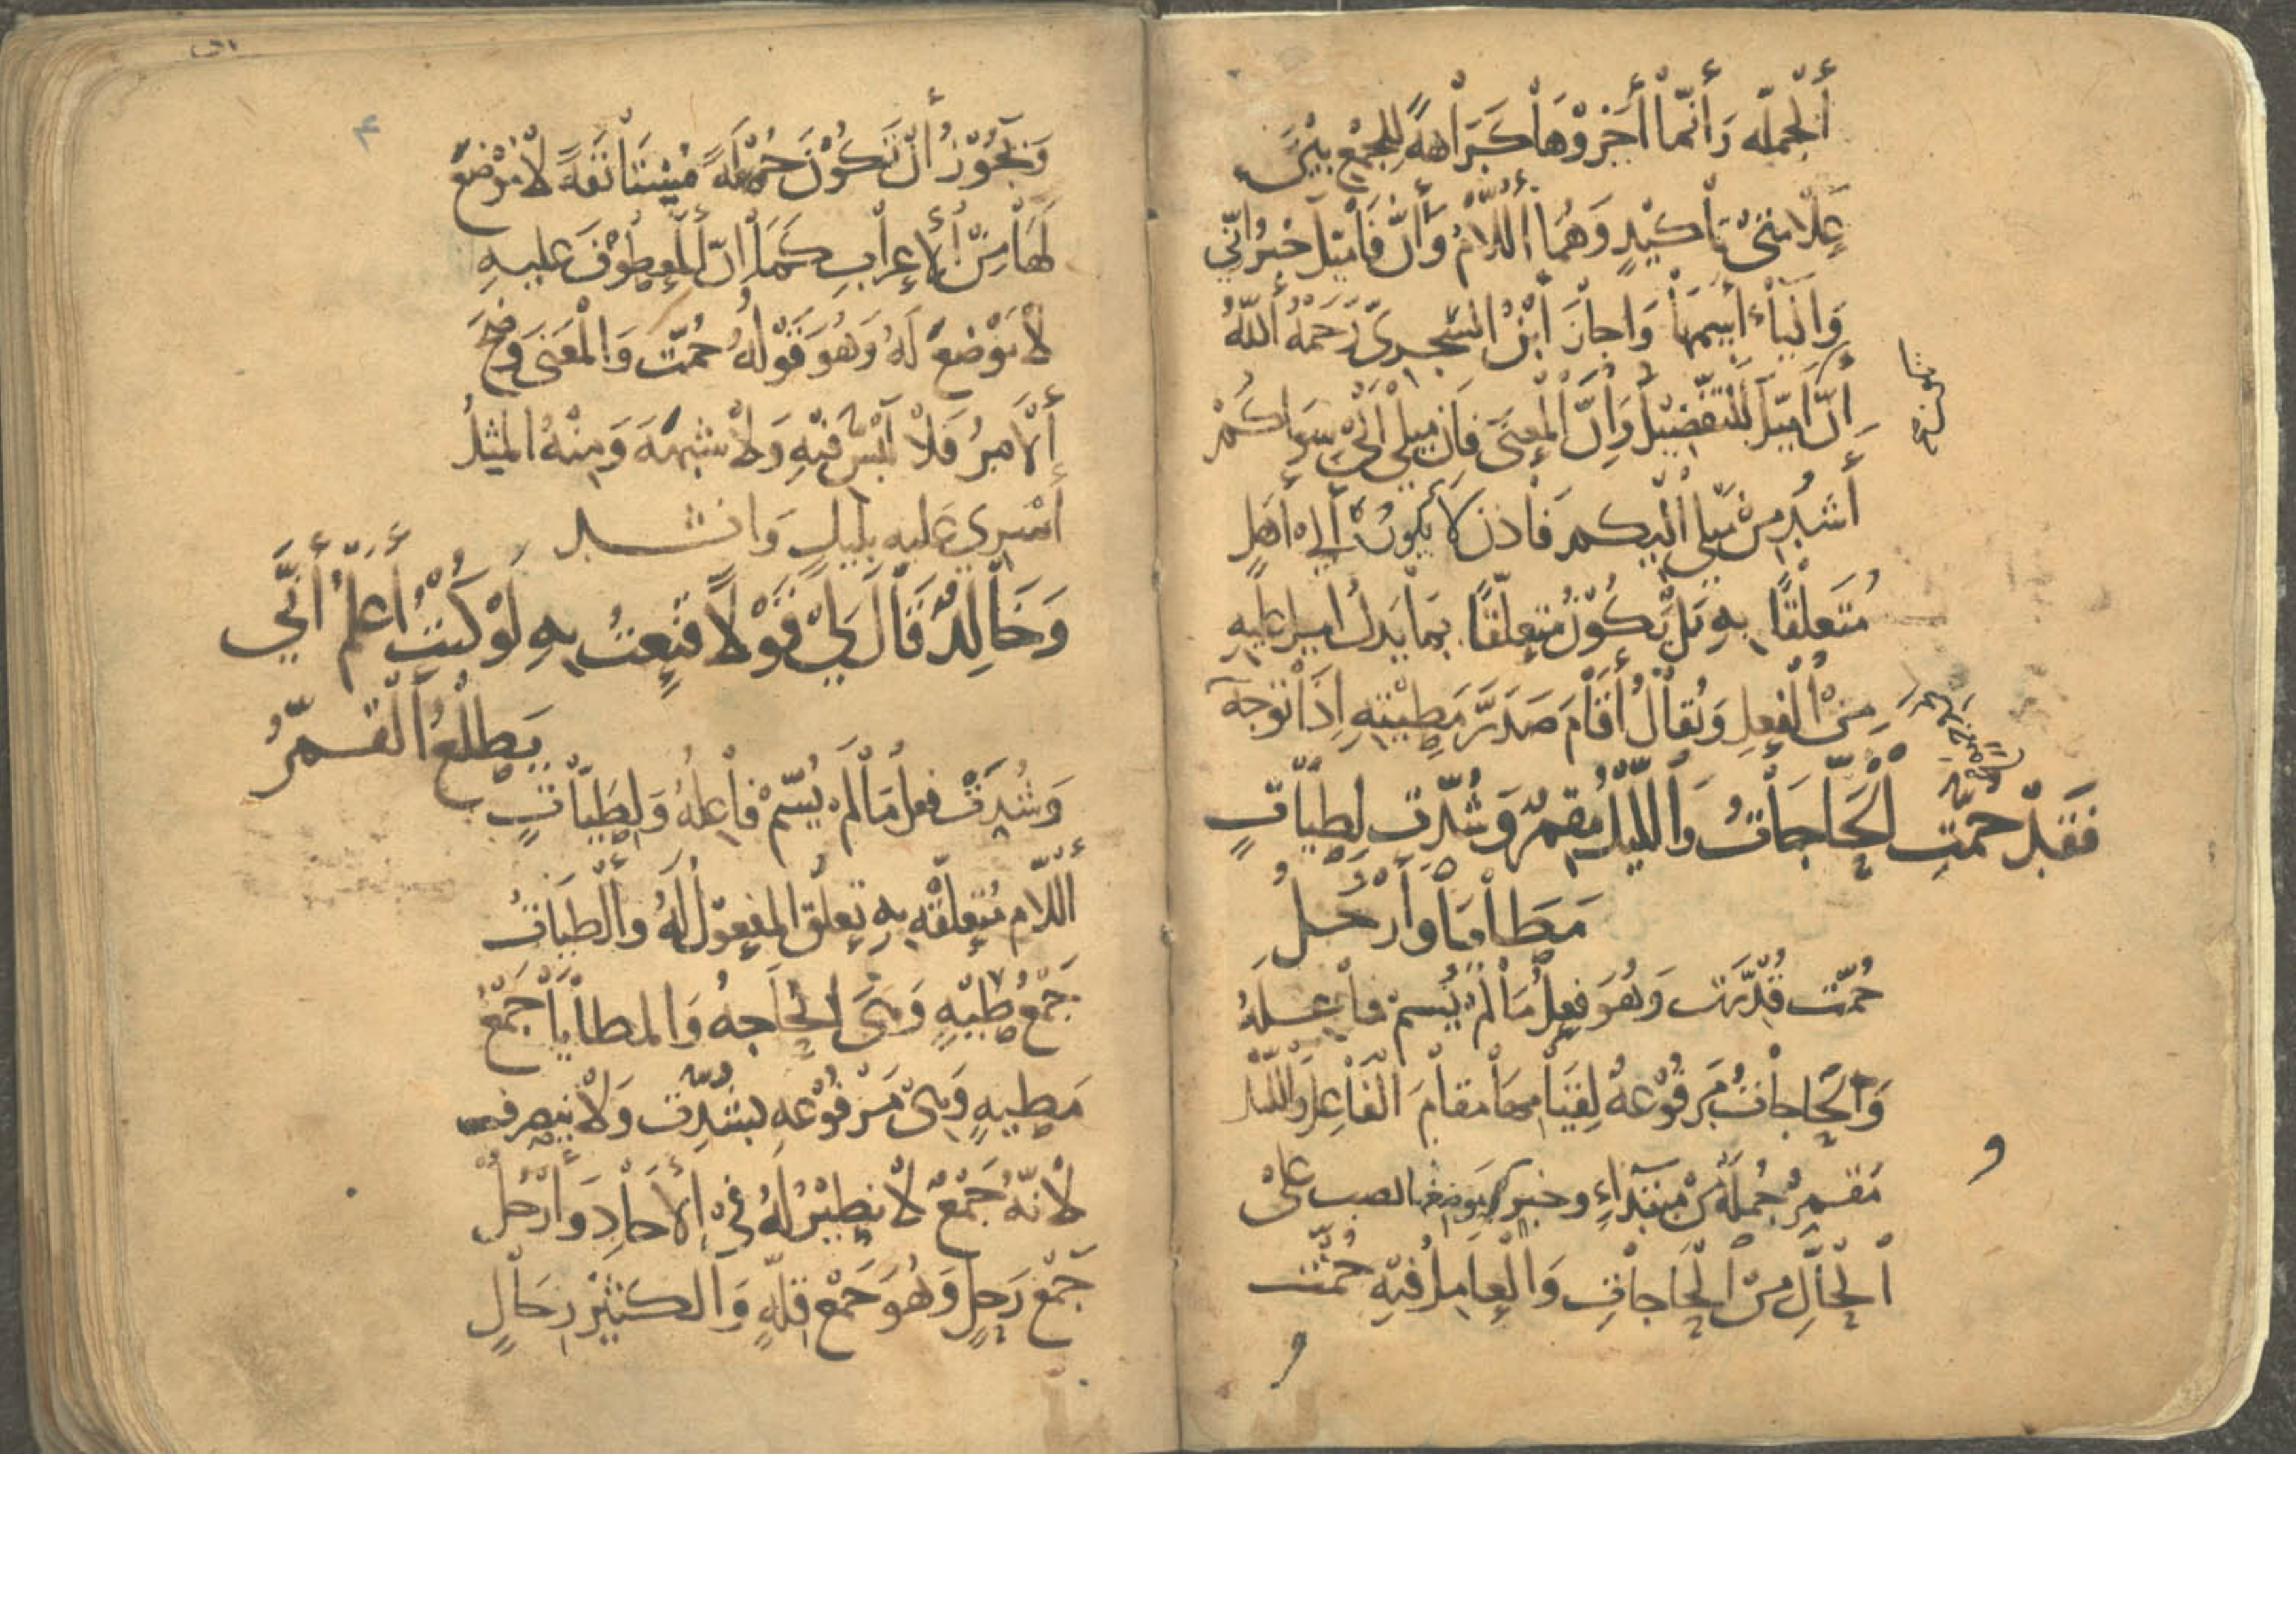 أَلْجُملَه وَأَنَّمَا أَخَّرُوْهَا كَرَاهةً لِلجَمْعِ بَيْنَ
عَلَامَتَىْ تَأكيْدٍ وَهُمَا أللَّامُ وَأنَّ فَأَميَلُ خبرُ انّي
وَاليَاءُ أسِمُهَا وَاجَازَ ابْنُ الشَجَرِىّ رَحَمهُ أللّهُ
أنّ اميَلَ للتَفْضِيْل وَانّ المعنَى فَان ميلي الَىْ سِوَاكمْ
أشَدُ مِنْ مَيلي اليكم فَاذن لَا يكونُ الىٰ أهل
مُتَعَلْقًا بِهِ بَلْ يَكُوْنُ مُتعلّقًا بمَا يَدلُ اميل عليهِ
مِنْ الْفِعلِ وَيُقَالُ أقَامَ صَدْرَ مَطِيَّتِهِ اذَا توجه
فَقَدْ حُمَّتِ الْحَاجَاتُ وَاللّيلُ مُقمِرٌ وَشُدّت لِطِيّاتٍ
مَطَايَا وَأَرْحُلُ
حُمّت قُدّرَت وَهُوَ فِعلُ مَا لَمْ يُسمّ فَاعِلهُ
وَالْحَاجَاتُ مَرفُوْعهُ لِقيَامِهَا مقَامَ الْفَاعِل وَاللّيل
مُقمِرٌ جُملَة مِنْ مبتدَاءٍ وخبر موضعها نصب على
الْحَالِ مِنْ الْحَاجَاتِ وَالْعَامِلُ فيْهِ حُمّت
وَيَجُوْزُ أنْ تَكُوْنَ جُمْلَةً مُسْتَأنَفَةً لَا مَوْضعَ
لَهَا مِنْ الْإعرَابِ كَمَا أنّ المعطوْفَ عليهِ
لَا مَوْضعَ لَهُ وَهُوَ قَوْلهُ حُمّت وَالْمعَنى وَضحَ
ألْأمرُ فَلَا لَبْسَ فيْهِ وَلَا شبهَة وَمِنْهُ المثلُ
أسْرِي عَليهِ بليلٍ وَانشد
وَخَالِدٌ قَالَ لِيْ قَوْلًا قَنِعتُ بِهِ لَوْ كُنتُ أعْلَمُ أنّي
يَطلُعُ الْقمرُ
وَشُدّتْ فعلُ مَا لَمْ يُسَمّ فَاعِلهُ وَلِطِيّاتٍ
أللَّام مُتعلّقه بِهِ تعلّق المفعوْل لَهُ وَالطيَاتُ
جَمْعُ طيّهٍ وَهىَ الْحَاجهُ وَالمطَايَا جَمْعُ
مَطيهٍ وَهِىَ مَرْفوْعهِ بشُدّت وَلَا ينصرف
لَانّهُ جَمْعٌ لَا نظيْرَ لَهُ فيْ الْأحَادِ وَأرْحُلُ
جَمْعُ رَحلٍ وَهُوَ جَمْع قلّهٍ وَالكثيْر رِحَالٍ